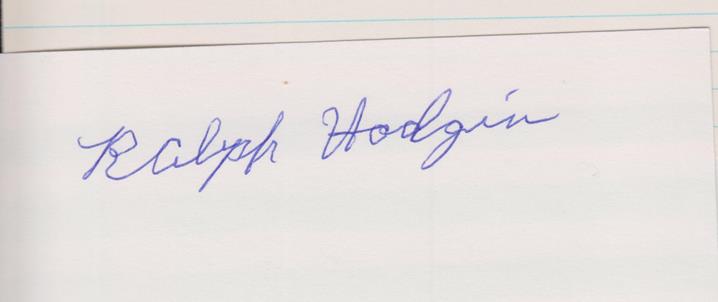 Ralph Hodgin